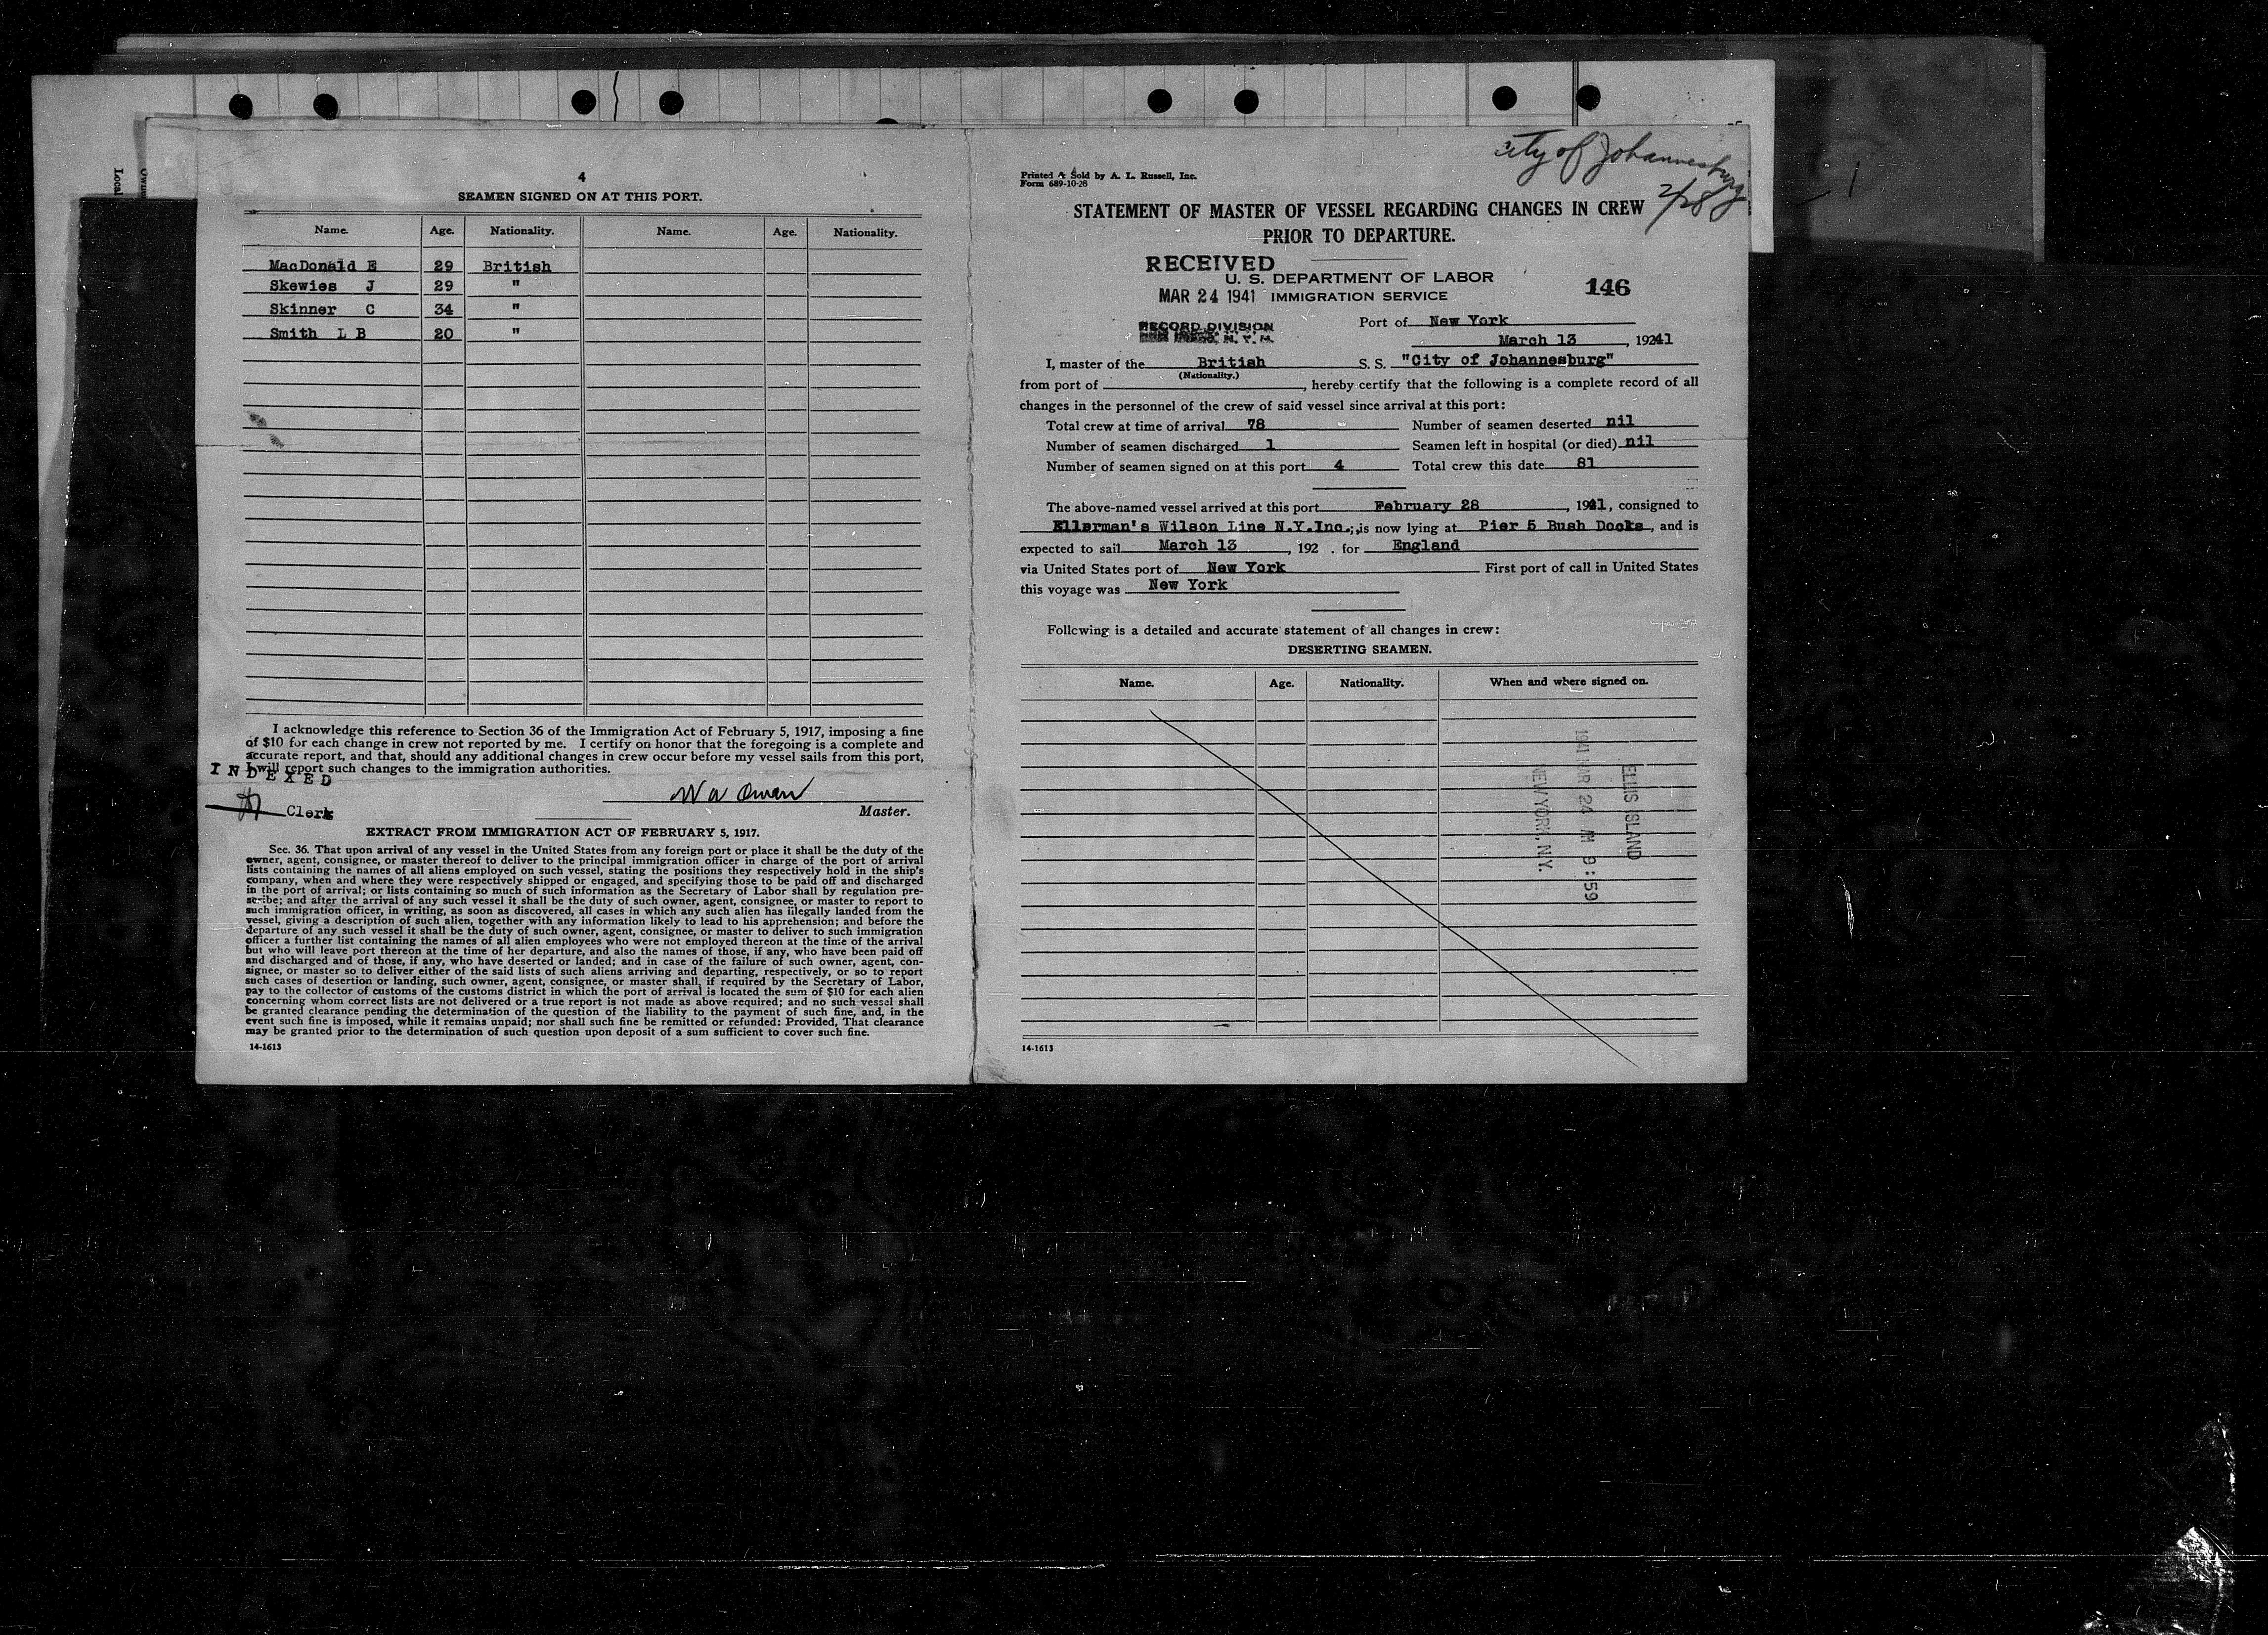 4
SEAMEN SIGNED ON AT THIS PORT.
Name. Age. Nationality. Name. Age. Nationality.
MacDonald E 29 British
Skewies J 29 "
Skinner C 34 "
Smith L B 20 "
I acknowledge this reference to Section 36 of the Immigration Act of February 5, 1917, imposing a fine
of $10 for each change in crew not reported by me. I certify on honor that the foregoing is a complete and
accurate report, and that, should any additional changes in crew occur before my vessel sails from this port,
I will report such changes to the immigration authorities.
INDEXED
Clerk
W a Owen
Master.
EXTRACT FROM IMMIGRATION ACT OF FEBRUARY 5, 1917.
Sec. 36. That upon arrival of any vessel in the United States from any foreign port or place it shall be the duty of the
owner, agent, consignee, or master thereof to deliver to the principal immigration officer in charge of the port of arrival
lists containing the names of all aliens employed on such vessel, stating the positions they respectively hold in the ship's
company, when and where they were respectively shipped or engaged, and specifying those to be paid off and discharged
in the port of arrival; or lists containing so much of such information as the Secretary of Labor shall by regulation pre-
scribe; and after the arrival of any such vessel it shall be the duty of such owner, agent, consignee, or master to report to
such immigration officer, in writing, as soon as discovered, all cases in which any such alien has illegally landed from the
vessel, giving a description of such alien, together with any information likely to lead to his apprehension; and before the
departure of any such vessel it shall be the duty of such owner, agent, consignee, or master to deliver to such immigration
officer a further list containing the names of all alien employees who were not employed thereon at the time of the arrival
but who will leave port thereon at the time of her departure, and also the names of those, if any, who have been paid off
and discharged and of those, if any, who have deserted or landed; and in case of the failure of such owner, agent, con-
signee, or master so to deliver either of the said lists of such aliens arriving and departing, respectively, or so to report
such cases of desertion or landing, such owner, agent, consignee, or master shall, if required by the Secretary of Labor,
pay to the collector of customs of the customs district in which the port of arrival is located the sum of $10 for each alien
concerning whom correct lists are not delivered or a true report is not made as above required; and no such vessel shall
be granted clearance pending the determination of the question of the liability to the payment of such fine, and, in the
event such fine is imposed, while it remains unpaid; nor shall such fine be remitted or refunded: Provided, That clearance
may be granted prior to the determination of such question upon deposit of a sum sufficient to cover such fine.
14-1613
Local
City of Johannesburg
2/28
Printed & Sold by A. L. Russell, Inc.
Form 689-10-28
STATEMENT OF MASTER OF VESSEL REGARDING CHANGES IN CREW
PRIOR TO DEPARTURE.
RECEIVED
U. S. DEPARTMENT OF LABOR
146
MAR 24 1941 IMMIGRATION SERVICE
RECORD DIVISION
Port of New York
March 13, 19241
I, master of the British S. S. "City of Johannesburg"
(Nationality.)
from port of , hereby certify that the following is a complete record of all
changes in the personnel of the crew of said vessel since arrival at this port:
Total crew at time of arrival 78 Number of seamen deserted nil
Number of seamen discharged 1 Seamen left in hospital (or died) nil
Number of seamen signed on at this port 4 Total crew this date 81
The above-named vessel arrived at this port February 28, 1941, consigned to
Ellerman's Wilson Line N.Y.Inc.; is now lying at Pier 5 Bush Docks, and is
expected to sail March 13, 192 . for England
via United States port of New York First port of call in United States
this voyage was New York
Following is a detailed and accurate statement of all changes in crew:
DESERTING SEAMEN.
Name. Age. Nationality. When and where signed on.
ELLIS ISLAND
1941 MAR 24 M 9:59
NEW YORK, N.Y.
14-1613